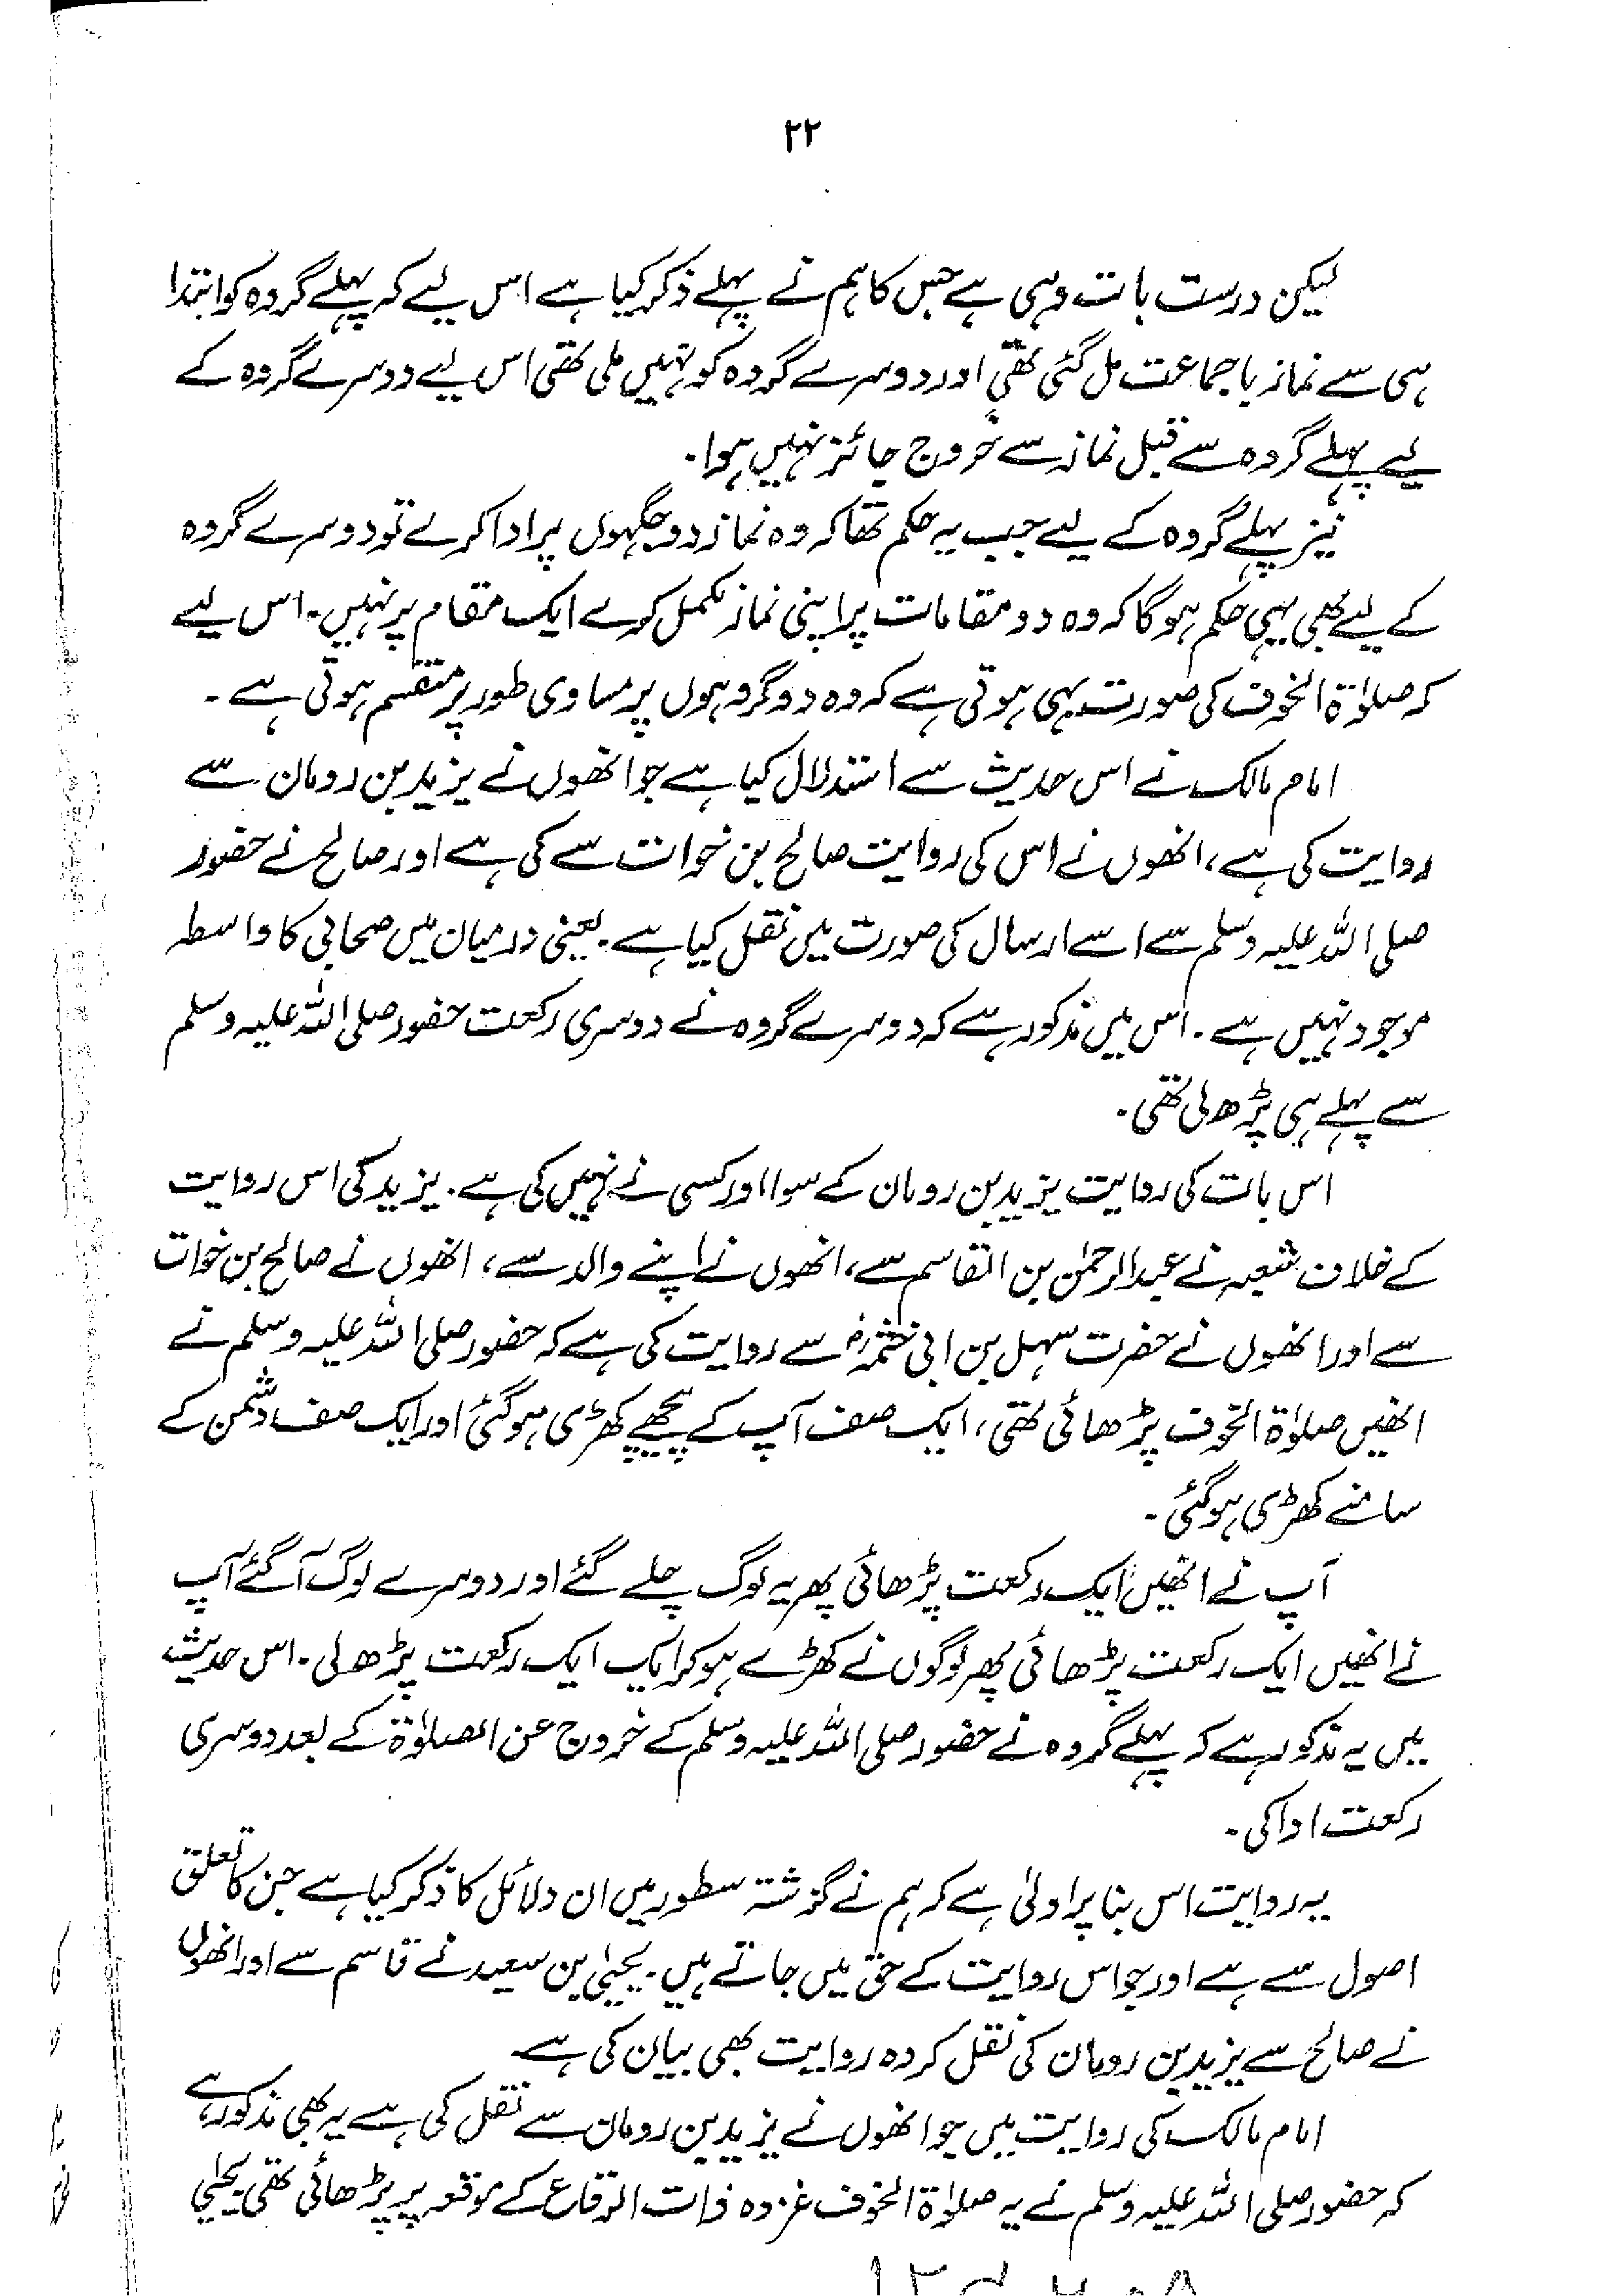 ۲۲
لیکن درست بات وہی ہے جس کا ہم نے پہلے ذکر کیا ہے اس لیے کہ پہلے گروہ کو ابتدا
ہی سے نماز با جماعت مل گئی تھی اور دوسرے گروہ کو نہیں ملی تھی اس لیے دوسرے گروہ کے
لیے پہلے گروہ سے قبل نماز سے خروج جائز نہیں ہوا۔
نیز پہلے گروہ کے لیے جب یہ حکم تھا کہ وہ نماز دو جگہوں پر ادا کرے تو دوسرے گروہ
کے لیے بھی یہی حکم ہو گا کہ وہ دو مقامات پر اپنی نماز مکمل کرے ایک مقام پر نہیں۔ اس لیے
کہ صلوٰۃ الخوف کی صورت یہی ہوتی ہے کہ وہ دو گروہوں پر مساوی طور پر منقسم ہوتی ہے۔
امام مالک نے اس حدیث سے استدلال کیا ہے جو انھوں نے یزید بن رومان سے
روایت کی ہے، انھوں نے اس کی روایت صالح بن خوات سے کی ہے اور صالح نے حضور
صلی اللہ علیہ وسلم سے اسے ارسال کی صورت میں نقل کیا ہے۔ یعنی درمیان میں صحابی کا واسطہ
موجود نہیں ہے۔ اس میں مذکور ہے کہ دوسرے گروہ نے دوسری رکعت حضور صلی اللہ علیہ وسلم
سے پہلے ہی پڑھ لی تھی۔
اس بات کی روایت یزید بن رومان کے سوا اور کسی نے نہیں کی ہے۔ یزید کی اس روایت
کے خلاف شعبہ نے عبدالرحمٰن بن القاسم سے، انھوں نے اپنے والد سے، انھوں نے صالح بن خوات
سے اور انھوں نے حضرت سہل بن ابی خثمہؓ سے روایت کی ہے کہ حضور صلی اللہ علیہ وسلم نے
انھیں صلوٰۃ الخوف پڑھائی تھی، ایک صف آپ کے پیچھے کھڑی ہو گئی اور ایک صف دشمن کے
سامنے کھڑی ہو گئی۔
آپ نے انھیں ایک رکعت پڑھائی پھر یہ لوگ چلے گئے اور دوسرے لوگ آ گئے آپ
نے انھیں ایک رکعت پڑھائی پھر لوگوں نے کھڑے ہو کر ایک ایک رکعت پڑھ لی۔ اس حدیث
میں یہ مذکور ہے کہ پہلے گروہ نے حضور صلی اللہ علیہ وسلم کے خروج عن الصلوٰۃ کے بعد دوسری
رکعت ادا کی۔
یہ روایت اس بنا پر اولیٰ ہے کہ ہم نے گزشتہ سطور میں ان دلائل کا ذکر کیا ہے جن کا تعلق
اصول سے ہے اور جو اس روایت کے حق میں جاتے ہیں۔ یحییٰ بن سعید نے قاسم سے اور انھوں
نے صالح سے یزید بن رومان کی نقل کردہ روایت بھی بیان کی ہے
امام مالک کی روایت میں جو انھوں نے یزید بن رومان سے نقل کی ہے یہ بھی مذکور ہے
کہ حضور صلی اللہ علیہ وسلم نے یہ صلوٰۃ الخوف غزوہ ذات الرقاع کے موقعہ پر پڑھائی تھی یحییٰ